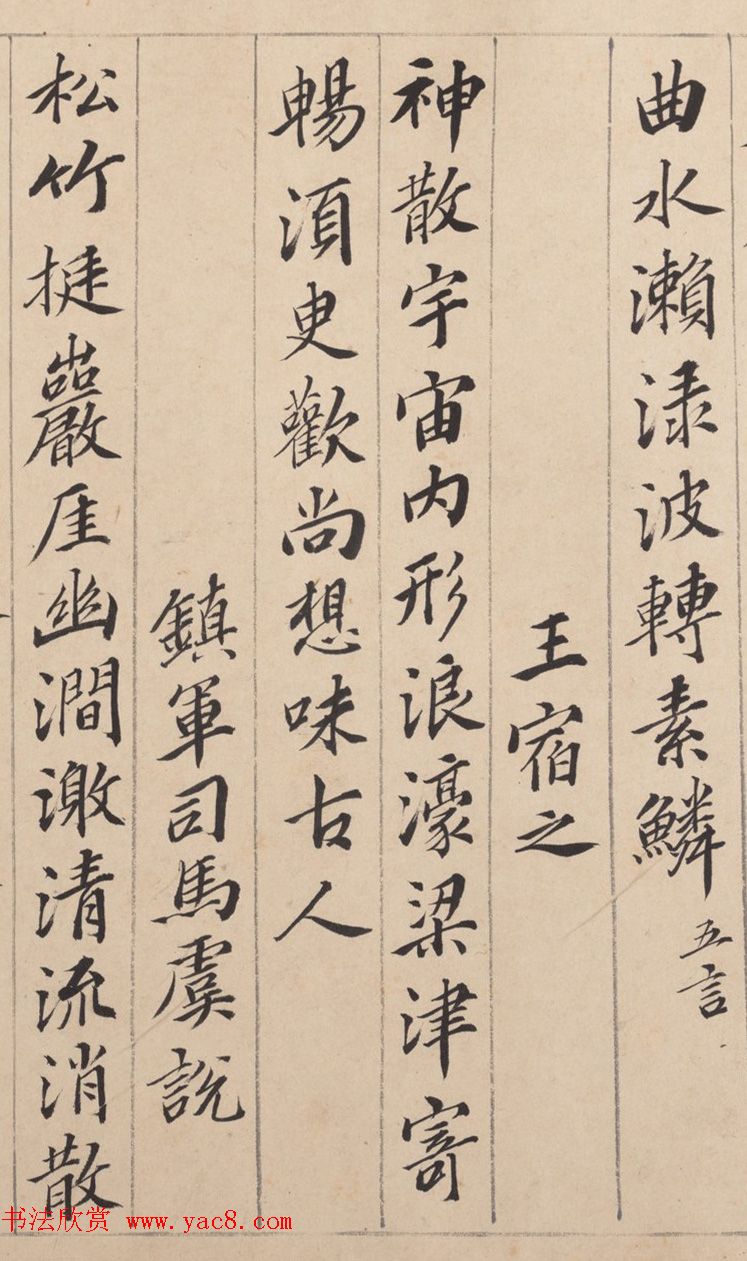 曲水瀨淥波轉素鱗 五言
王宿之
神散宇宙內形浪濠梁津寄
暢須臾歡尚想味古人
鎮軍司馬虞說
松竹挺巖崖幽澗激清流消散
书法欣赏 www.yac8.com